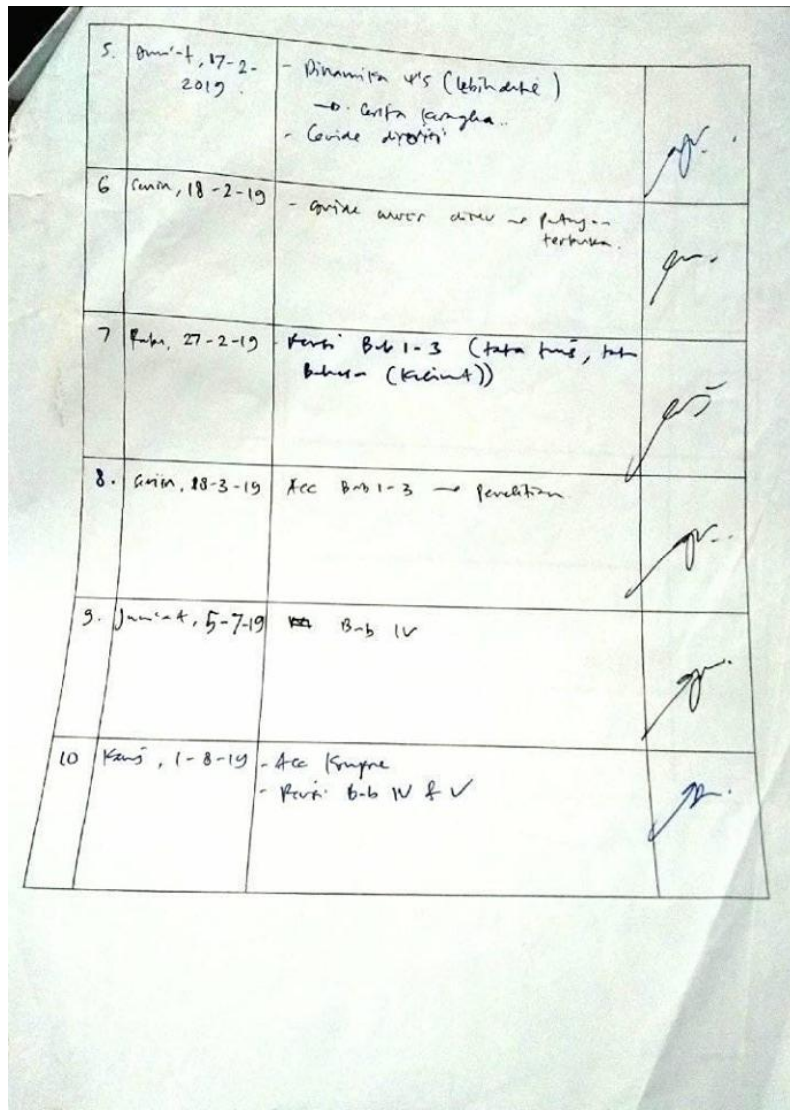 5. Jum'at, 17-2-
2019.
- Dinamika ψs (lebih
→ cerita
- Guide direvisi
6 Senin, 18-2-19
- guide direv →
terbuka.
7 Rabu, 27-2-19
- Revisi Bab 1-3 (tata tulis, tata
Bahasa (Kalimat))
8. Senin, 18-3-19
Acc Bab 1-3 → penelitian
9. Jum'at, 5-7-19
Bab IV
10 Kamis, 1-8-19
- Acc
- Revisi Bab IV & V